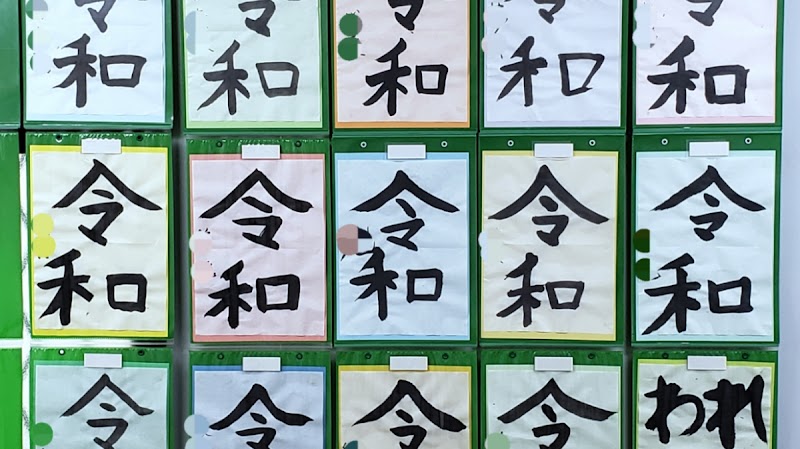 令和
令和
令和
令和
令和
令和
令和
令和
令和
令和
令
令
令
令
われ